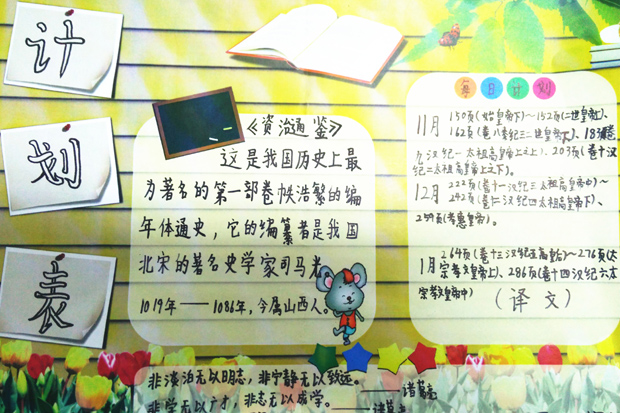 计
划
表
《资治通鉴》
这是我国历史上最
为著名的第一部卷帙浩繁的编
年体通史，它的编纂者是我国
北宋的著名史学家司马光
1019年——1086年，今属山西人。
每日计划
11月 150页(始皇帝下)～152页(二世皇帝上)、
162页(卷八秦纪三二世皇帝下)、183页卷
九汉纪一太祖高皇帝上之上)、203页(卷十汉
纪二太祖高皇帝上之下)。
12月 222页(卷十一汉纪三太祖高皇帝中)～
242页(卷十二汉纪四太祖高皇帝下)、
259页(孝惠皇帝)。
1月 264页(卷十三汉纪五高皇后)～276页(太
宗孝文皇帝上)、286页(卷十四汉纪六太
宗孝文皇帝中)
(译文)
非淡泊无以明志，非宁静无以致远。
——诸葛亮
非学无以广才，非志无以成学。
——诸葛亮